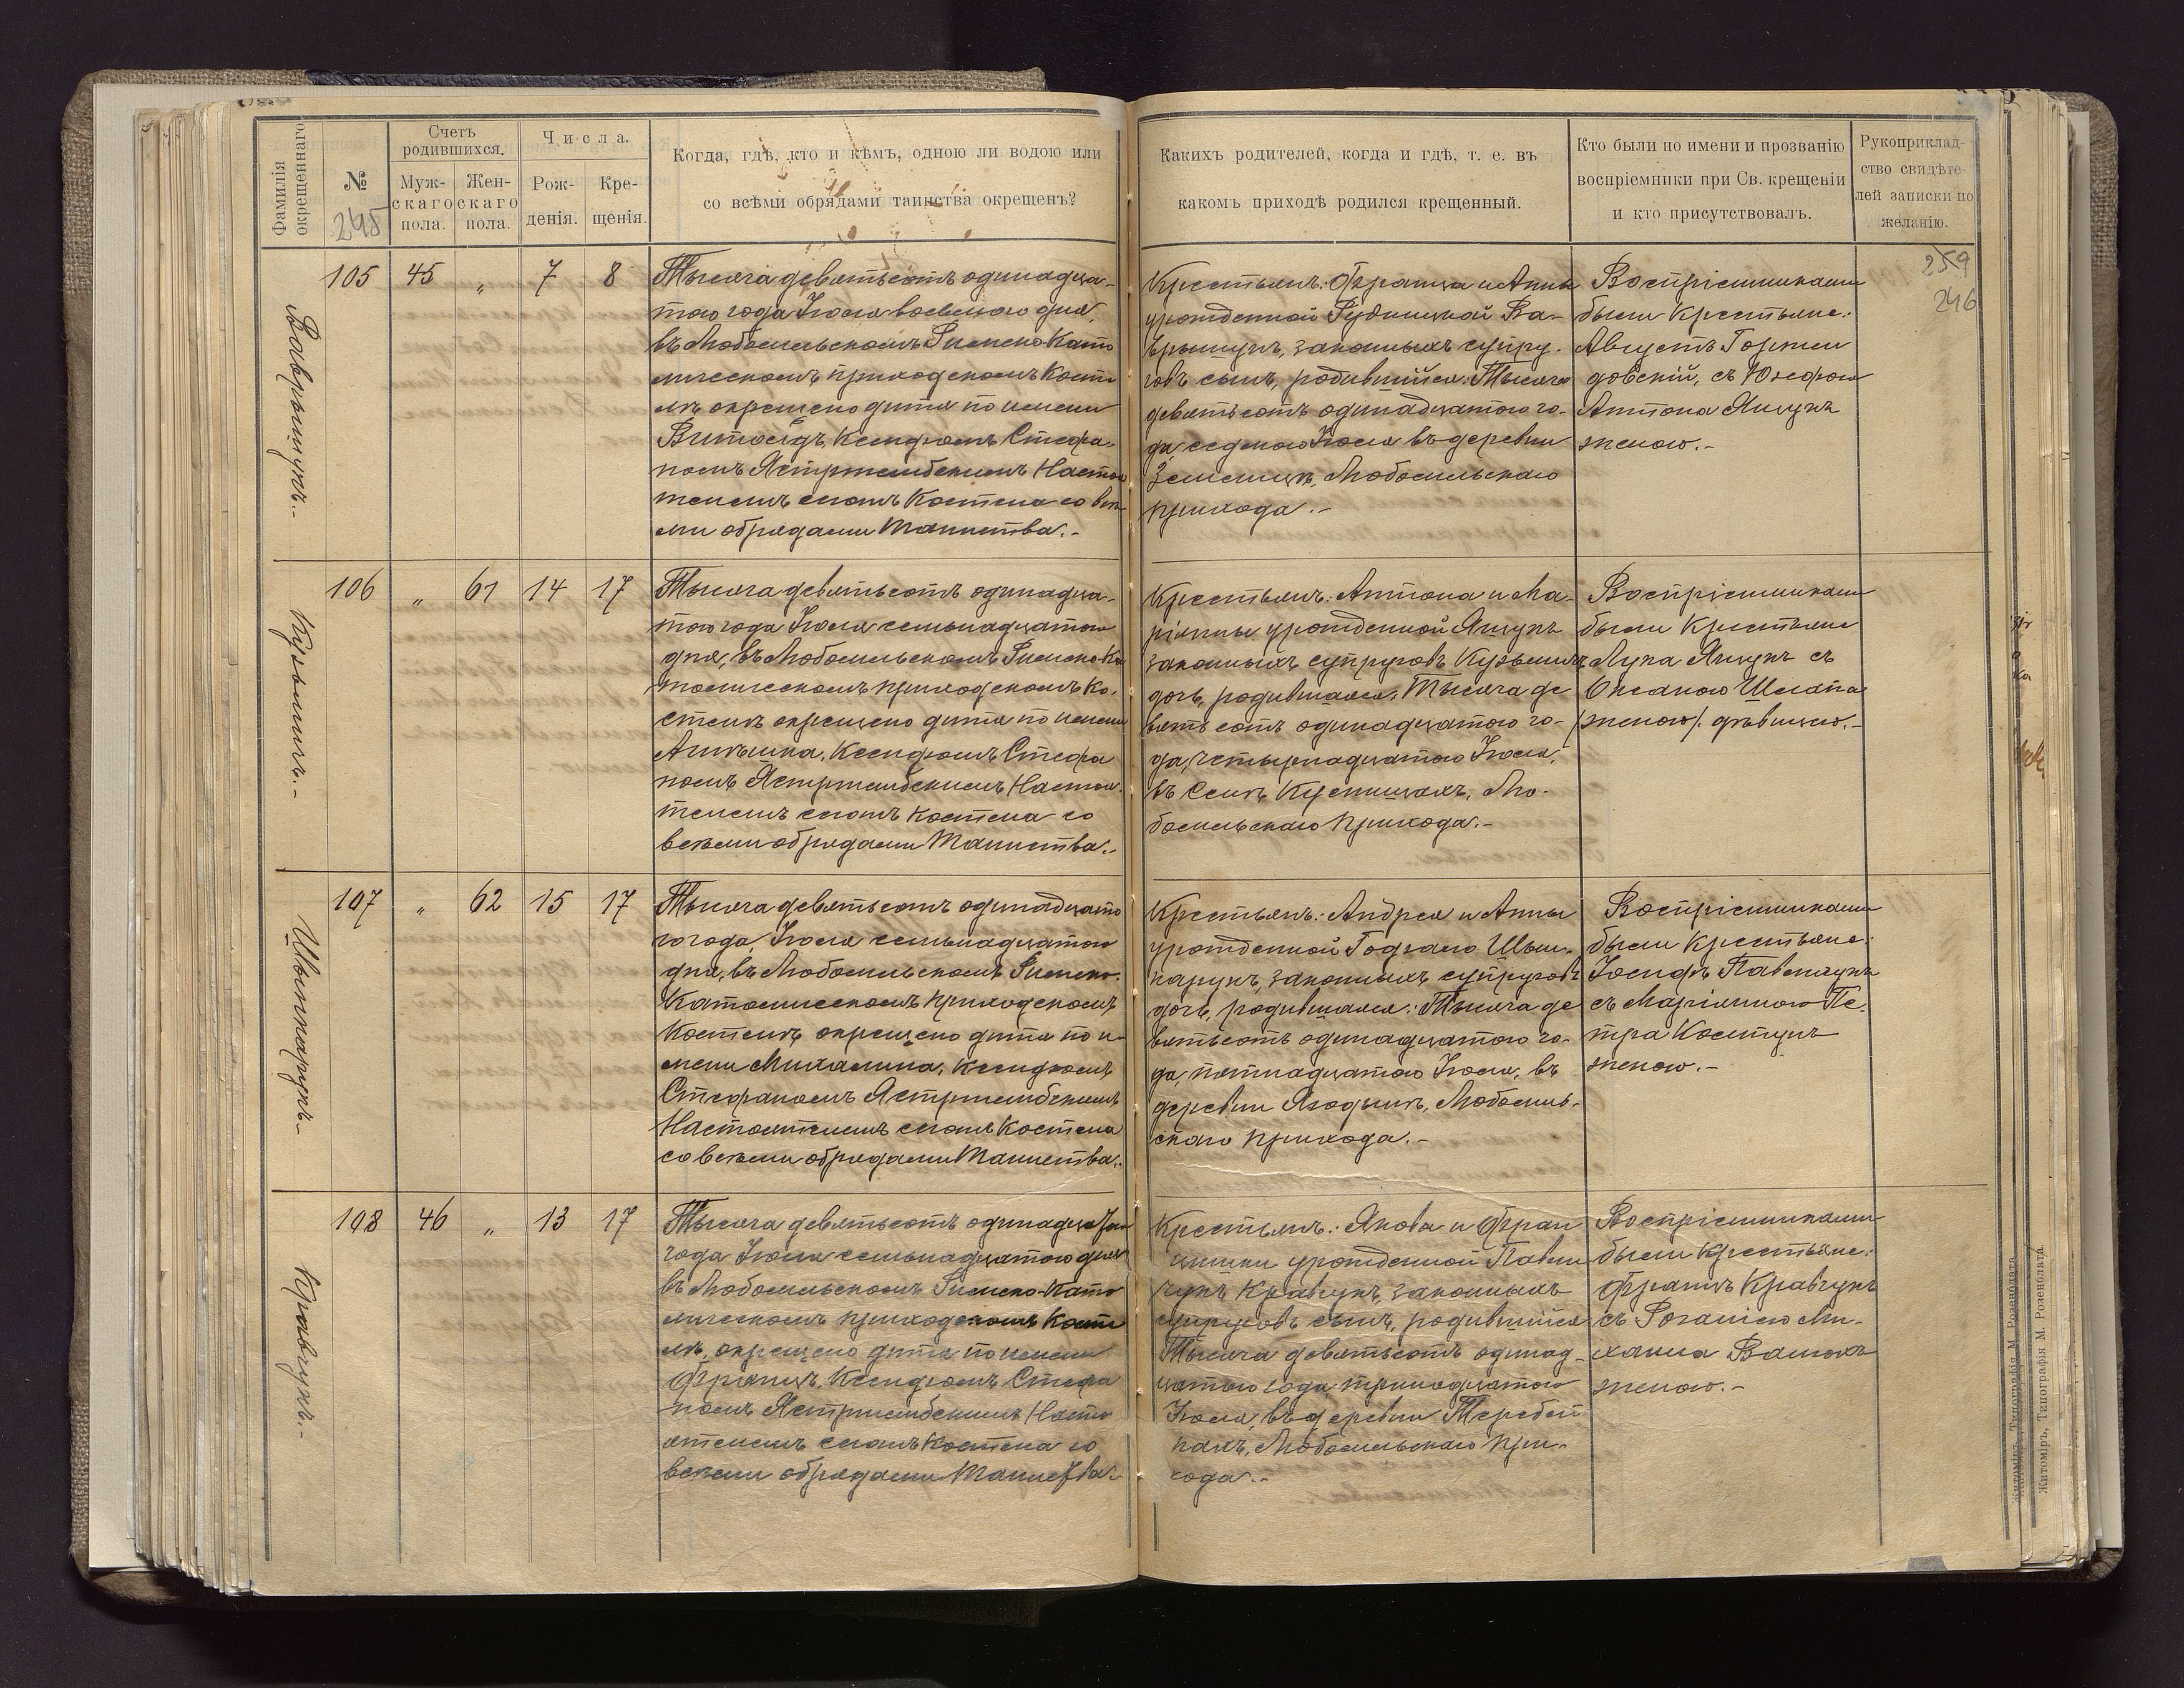 Фамилія
окрещеннаго
№
245
Счетъ
родившихся.
Муж-
скаго
пола.
Жен-
скаго
пола.
Числа.
Рож-
денія.
Кре-
щенія.
Когда, гдѣ, кто и кѣмъ, одною ли водою или
со всѣми обрядами таинства окрещенъ?
Какихъ родителей, когда и гдѣ, т. е. въ
какомъ приходѣ родился крещенный.
Кто были по имени и прозванію
воспріемники при Св. крещеніи
и кто присутствовалъ.
Рукоприклад-
ство свидѣте-
лей записки по
желанію.
259
246
Ваврыщукъ.-
105 45 „ 7 8
Тысяча девятьсотъ одинадца-
того года Іюля восьмого дня,
въ Любомльскомъ Римско-Като
лическомъ приходскомъ Косте
лѣ окрещено дитя по имени
Витольдъ, Ксендзомъ Стефа-
номъ Ястржембскимъ Настоя
телемъ сего Костела со всѣ-
ми обрядами Таинства.-
Крестьянъ: Франца и Анны
урожденной Рудницкой Ва-
врыщукъ, законныхъ супру-
говъ сынъ, родившійся: Тысяча
девятьсотъ одинадцатого го-
да, седьмого Іюля въ деревни
Землицѣ, Любомльскаго
прихода.-
Воспріемниками
были Крестьяне:
Августъ Горжен
довскій, съ Юзефою
Антона Ящукъ
женою.-
Кузьмичъ.-
106 „ 61 14 17
Тысяча девятьсотъ одинадца-
того года Іюля семьнадцатого
дня, въ Любомльскомъ Римско-Ка
толическомъ приходскомъ Ко-
стелѣ окрещено дитя по имени
Анѣлина, Ксендзомъ Стефа
номъ Ястржембскимъ Настоя-
телемъ сего Костела со
всѣми обрядами Таинства.-
Крестьянъ: Антона и Ма-
ріянны урожденной Ящукъ
законныхъ супруговъ Кузьмичъ
дочь, родившаяся: Тысяча де
вятьсотъ одинадцатого го-
да, четырнадцатого Іюля,
въ Селѣ Куснищахъ, Лю-
бомльскаго прихода.-
Воспріемниками
были Крестьяне
Лука Ящукъ съ
женою/. дѣвицею.-
Шыпкарукъ.-
107 „ 62 15 17
Тысяча девятьсотъ одинадцато
го года, Іюля семьнадцатого
дня, въ Любомльскомъ Римско-
Католическомъ приходскомъ
Костелѣ окрещено дитя по и-
мени Михалина, Ксендзомъ
Стефаномъ Ястржембскимъ
Настоятелемъ сего Костела
со всѣми обрядами Таинства.-
Крестьянъ: Андрея и Анны
урожденной Годзало Шып-
карукъ, законныхъ супруговъ
дочь, родившаяся: Тысяча де
вятьсотъ одинадцатого го-
да, пятнадцатого Іюля, въ
деревни Ягодынѣ, Любомль-
скаго прихода.-
Воспріемниками
были Крестьяне:
Іосифъ Павельчукъ
съ Маріянною Пе-
тра Костукъ
женою.-
Кравчукъ.-
108 46 „ 13 17
Тысяча девятьсотъ одинадцатаго
года Іюля семьнадцатого дня
въ Любомльскомъ Римско-Като
лическомъ приходскомъ Косте
лѣ, окрещено дитя по имени
Францъ, Ксендзомъ Стефа
номъ Ястржембскимъ Насто
ятелемъ сего Костела со
всѣми обрядами Таинства.-
Крестьянъ: Якова и Фран
цишки урожденной Павли
чукъ Кравчукъ, законныхъ
супруговъ сынъ, родившійся
Тысяча девятьсотъ одинад-
цатого года, тринадцатого
Іюля, въ деревни Теребей
кахъ, Любомльскаго при-
хода.-
Воспріемниками
были Крестьяне:
Францъ Кравчукъ
съ Розаліею Ми-
хаила
женою.-
Житоміръ, Типографія М. Розенблата.
Житоміръ, Типографія М. Розенблата.